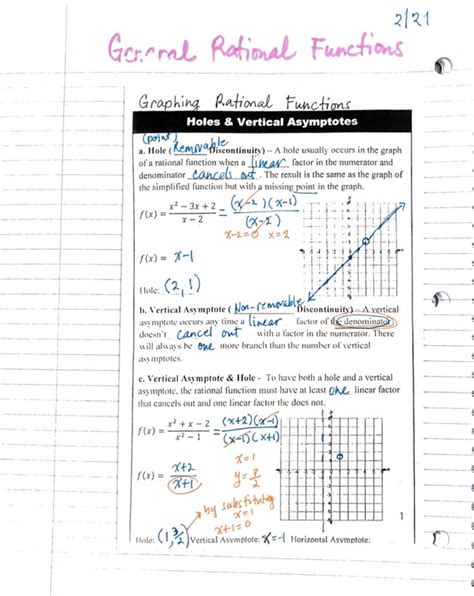 2/21
General Rational Functions
Graphing Rational Functions
Holes & Vertical Asymptotes
(point)
a. Hole (Removable Discontinuity) – A hole usually occurs in the graph
of a rational function when a linear factor in the numerator and
denominator cancels out. The result is the same as the graph of
the simplified function but with a missing point in the graph.
f(x) = x² − 3x + 2 / x − 2 = (x−2)(x−1) / (x−2)
x−2=0 x=2
f(x) = x−1
Hole: (2, 1)
b. Vertical Asymptote (Non-removable Discontinuity) – A vertical
asymptote occurs any time a linear factor of the denominator
doesn't cancel out with a factor in the numerator. There
will always be one more branch than the number of vertical
asymptotes.
c. Vertical Asymptote & Hole - To have both a hole and a vertical
asymptote, the rational function must have at least one linear factor
that cancels out and one linear factor the does not.
f(x) = x² + x − 2 / x² − 1 = (x+2)(x−1) / (x−1)(x+1)
x=1
f(x) = x+2 / x+1
y=3/2
by substituting
x=1
x+1=0
1
Hole: (1, 3/2) Vertical Asymptote: x=−1 Horizontal Asymptote: